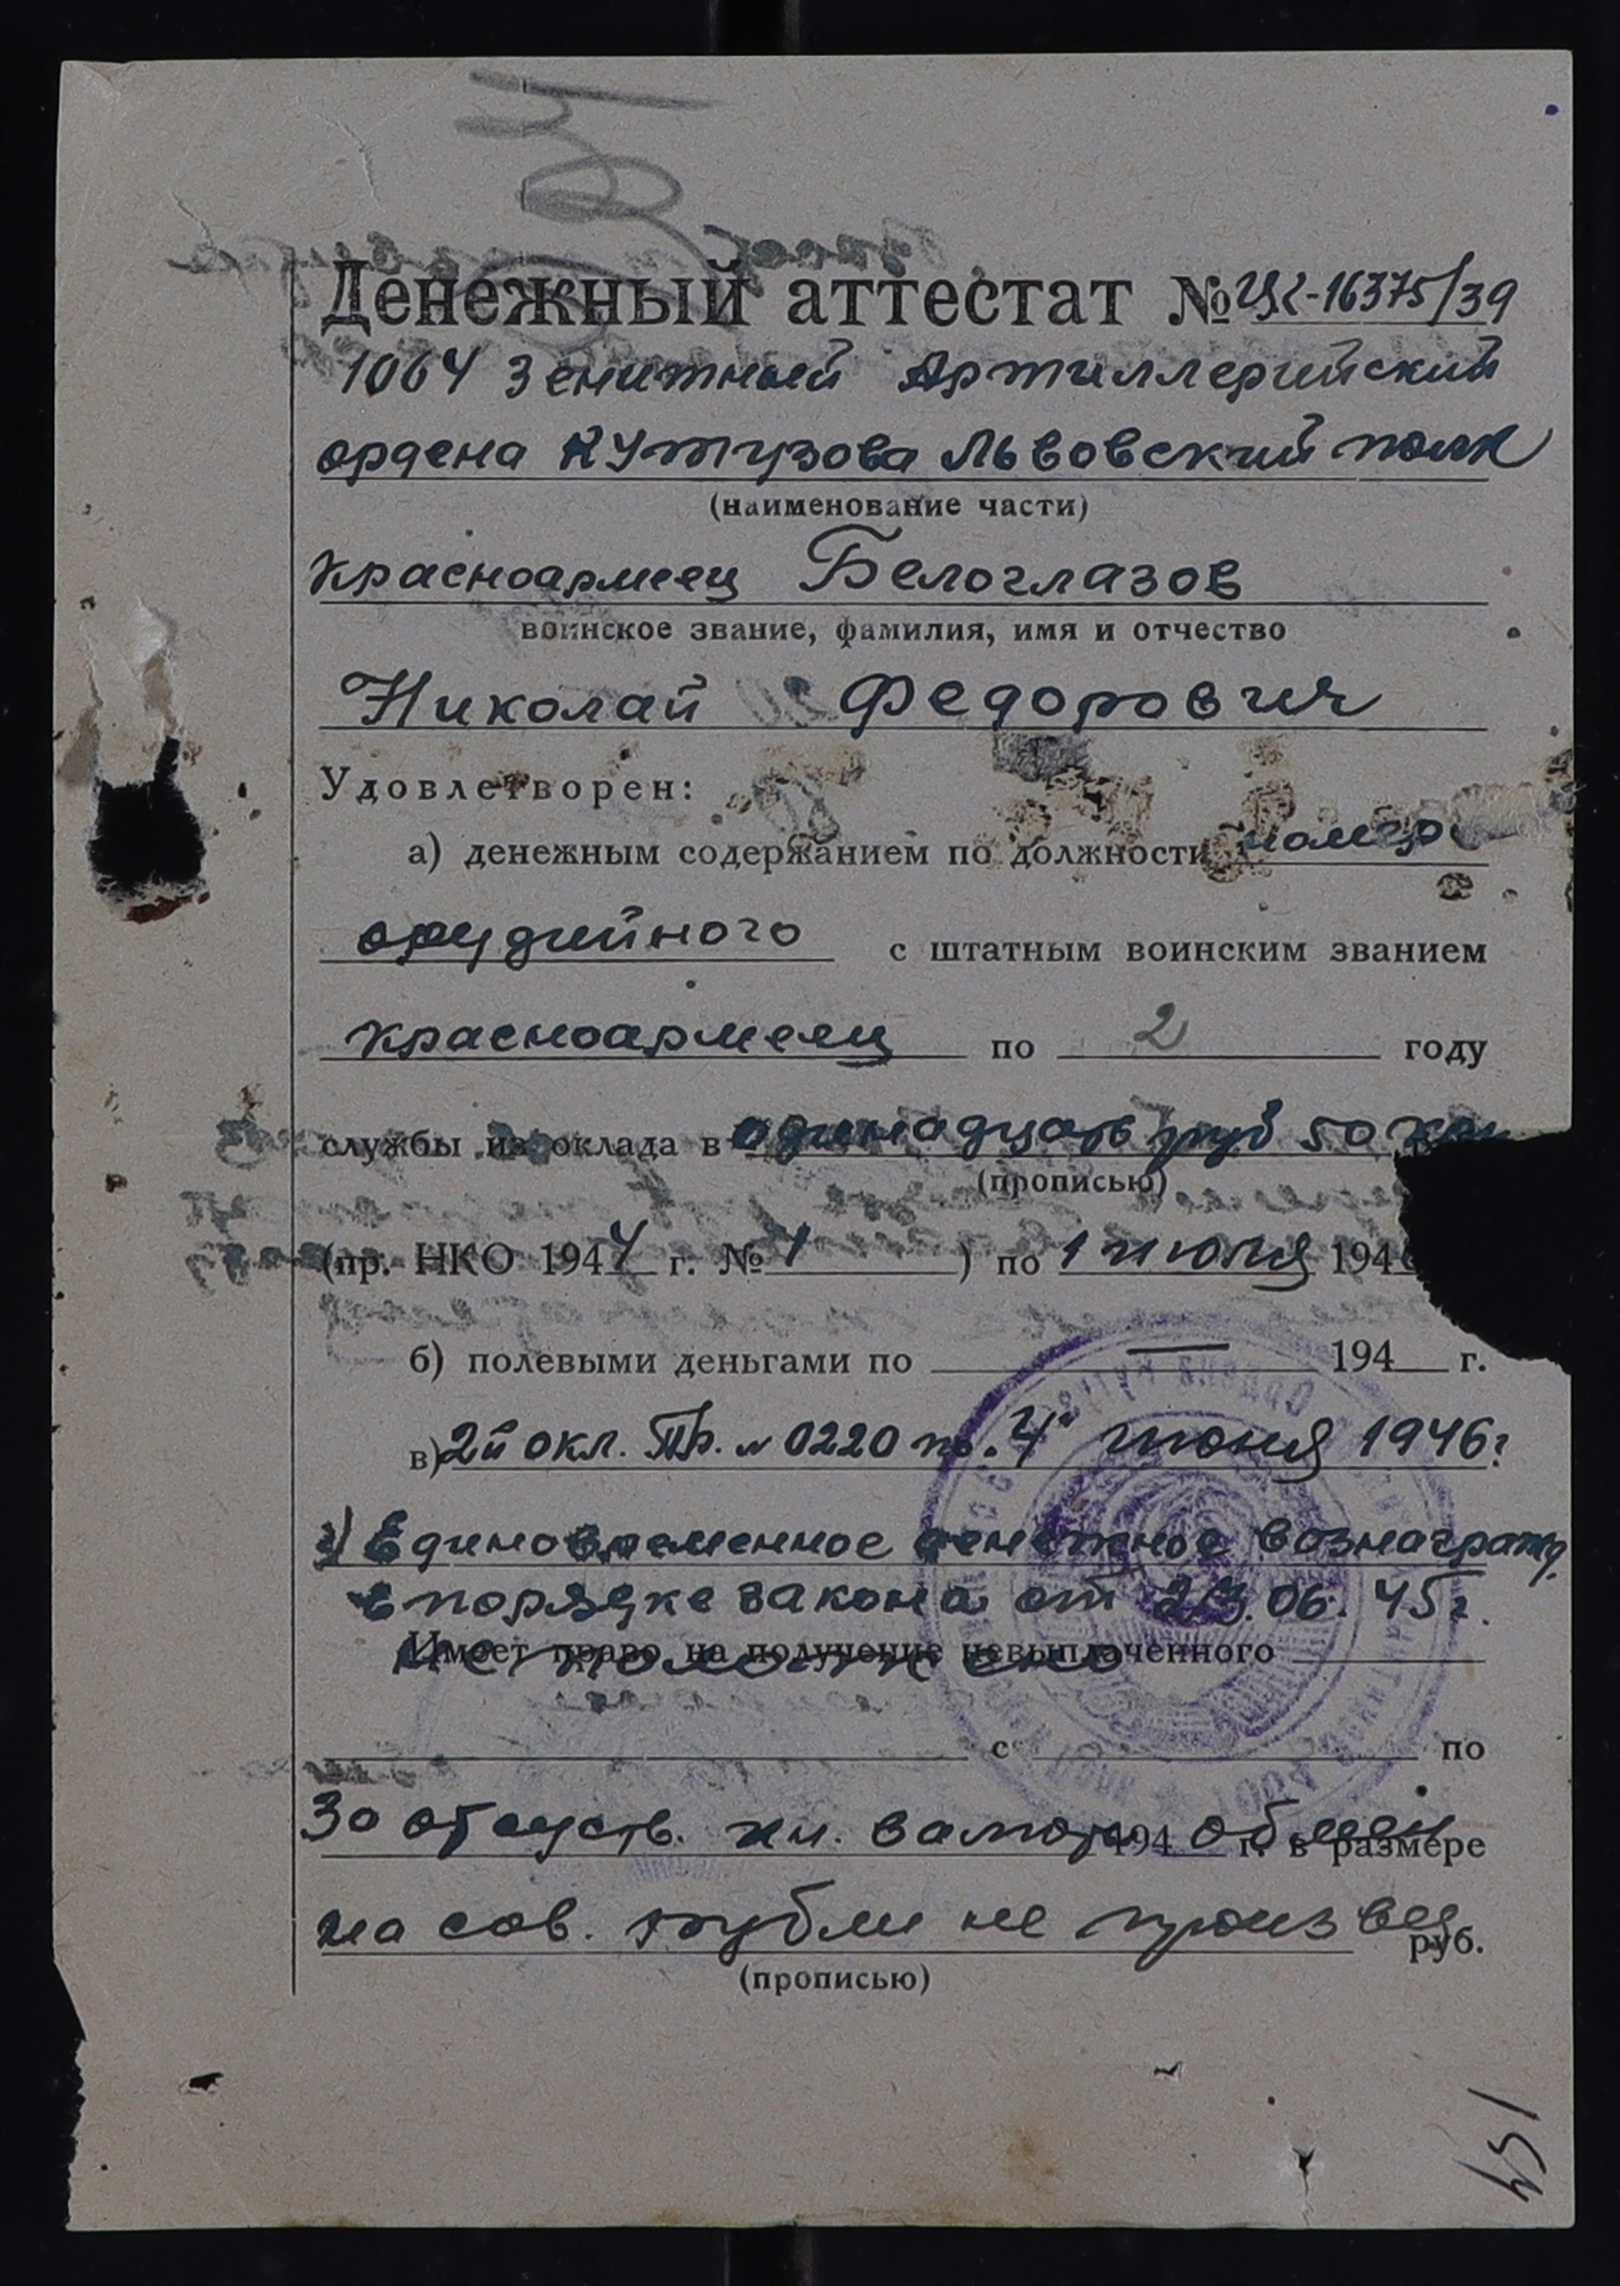 Денежный аттестат № ЦК-16375/39
1064 Зенитный Артиллерийский
ордена Кутузова Львовский полк
(наименование части)
красноармеец Белоглазов
воинское звание, фамилия, имя и отчество
Николай Федорович
Удовлетворен:
а) денежным содержанием по должности номер
орудийного с штатным воинским званием
красноармеец по 2 году
службы из оклада в одинадцать руб 50 коп
(прописью)
(пр. НКО 1944 г. № 1 ) по 1 июля 194
б) полевыми деньгами по — 194 г.
в) 2й окл. Пр. № 0220 по "4" июня 1946г
г) Единовременное денежное вознагражд.
в порядке закона от 23.06.45г.
Имеет право на получение невыплаченного
не положено
с по
За отсутств. ин. валюты обмен
194 г. в размере
на сов. рубли не произвед
руб.
(прописью)